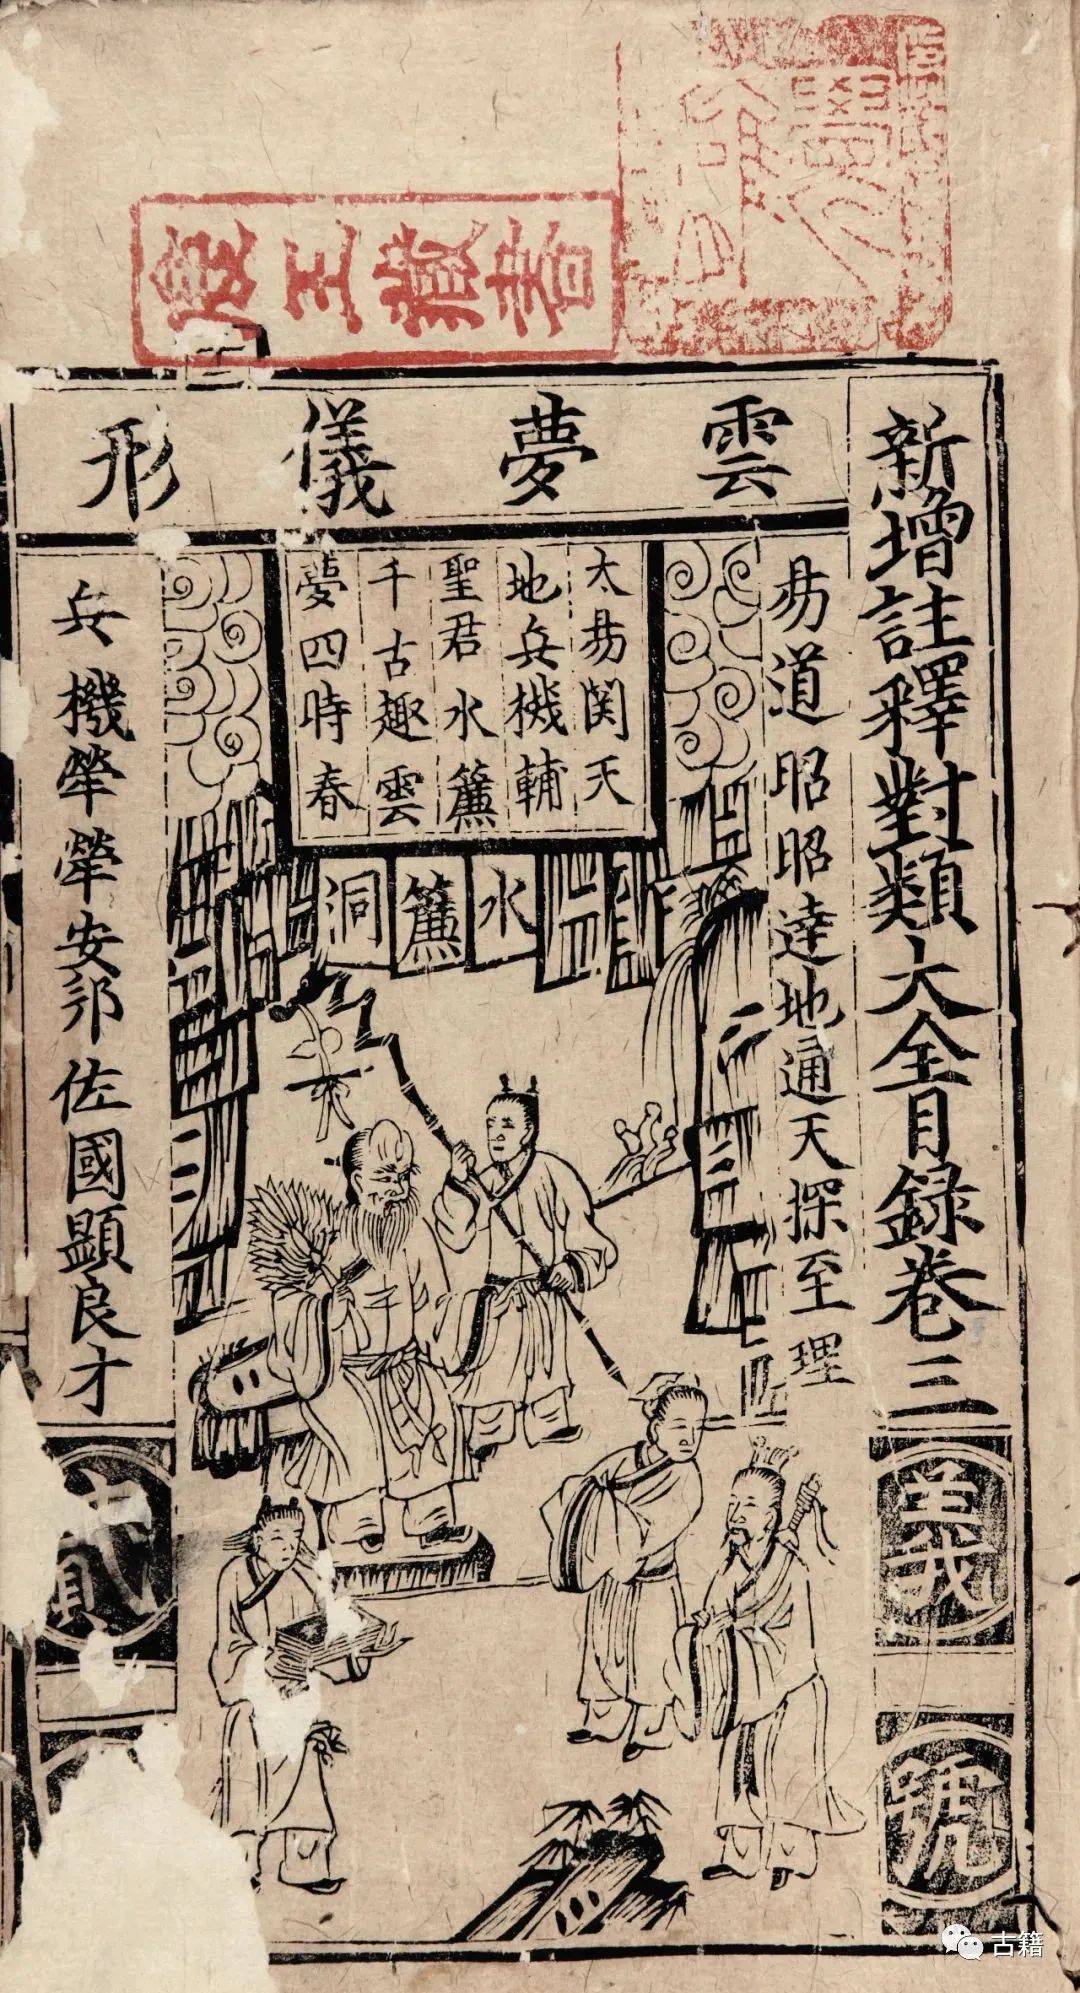 藏書
新增註釋對類大全目録卷三
義
號
雲夢儀形
易道昭昭達地通天探至理
太易関天
地兵機輔
聖君水簾
千古趣雲
夢四時春
水簾洞
兵機犖犖安邦佐國顯良才
古籍